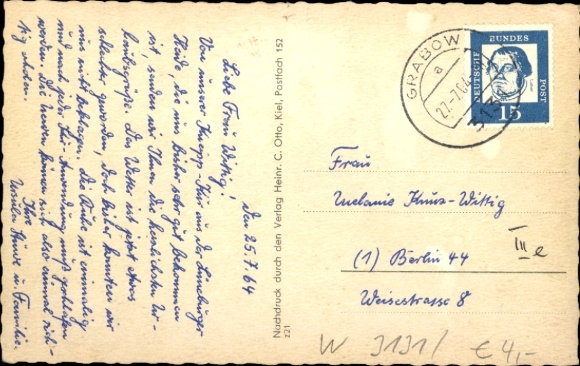 Den 25.7.64
Liebe Frau Wittig!
Von unserer Kneipp-Kur in der Lüneburger
Heide, die uns bisher sehr gut bekommen
ist, senden wir Ihnen die herzlichsten Ur-
laubsgrüße. Das Wetter ist jetzt etwas
schlechter geworden, doch bisher konnten wir
uns nicht beklagen. Die Ruhe ist einmalig
und nach jeder Kur-Anwendung muß geschlafen
werden. Die Nerven können sich also einmal rich-
tig erholen.
Ihre
Ursula und Familie.
Nachdruck durch den Verlag Heinr. C. Otto, Kiel, Postfach 152
z21
GRABOW
a
27.-7.64
3131
DEUTSCHE BUNDES POST
15
Frau
Melanie Kunz-Wittig
III e
(1) Berlin 44
Weisestrasse 8
W 3131/ € 4,-